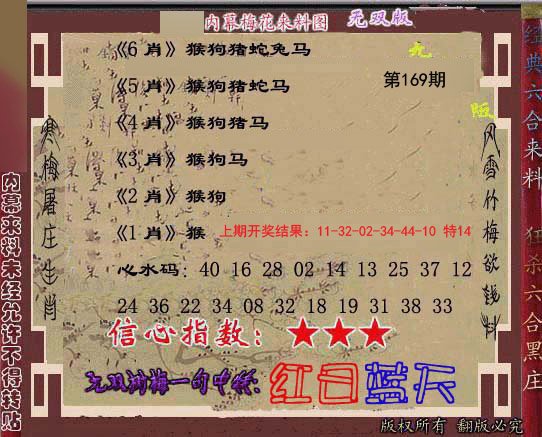 内幕梅花来料图 无双版
《6 肖》猴狗猪蛇兔马
《5 肖》猴狗猪蛇马
第169期
《4 肖》猴狗猪马
《3 肖》猴狗马
《2 肖》猴狗
《1 肖》猴
上期开奖结果：11-32-02-34-44-10 特14
心水码：40 16 28 02 14 13 25 37 12
24 36 22 34 08 32 18 19 31 38 33
信心指数：★★★
一句中特：红日蓝天
寒梅屠庄生肖
风雪竹梅欲钱料
内幕来料未经允许不得转贴
经典六合来料
狂杀六合黑庄
版权所有 翻版必究